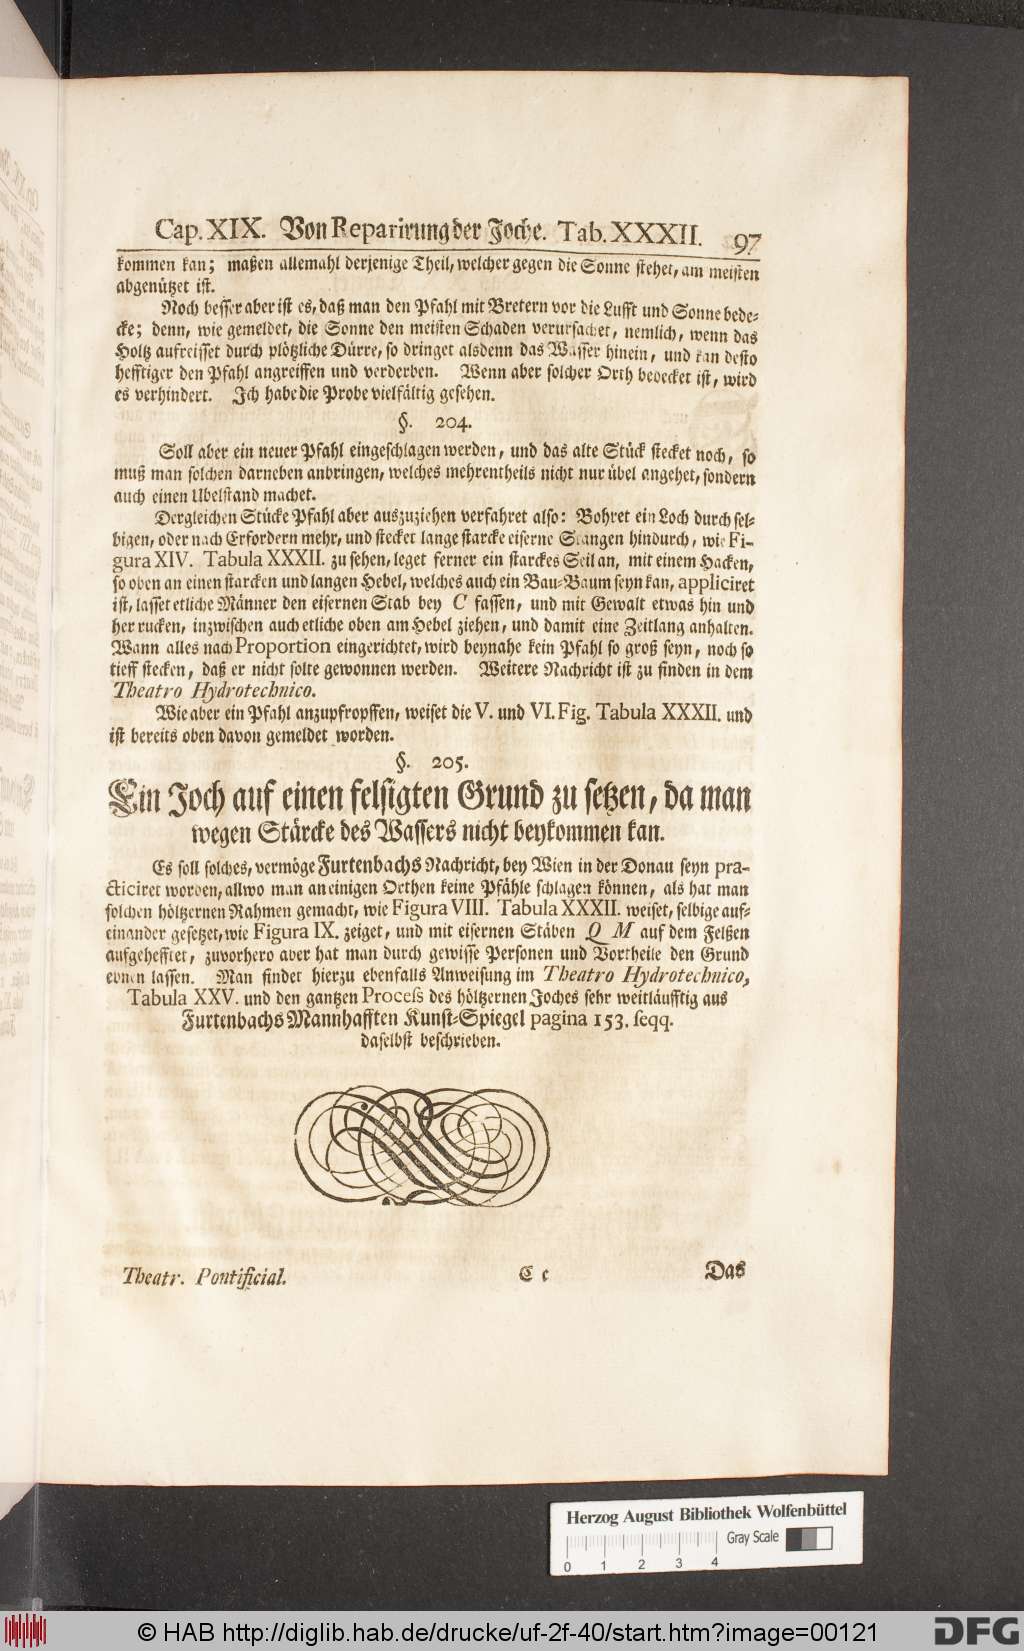 Cap. XIX. Von Reparirung der Joche. Tab. XXXII. 97
kommen kan; maßen allemahl derjenige Theil, welcher gegen die Sonne stehet, am meisten
abgenützet ist.
Noch besser aber ist es, daß man den Pfahl mit Bretern vor die Lufft und Sonne bede-
cke; denn, wie gemeldet, die Sonne den meisten Schaden verursachet, nemlich, wenn das
Holtz aufreisset durch plötzliche Dürre, so dringet alsdenn das Wasser hinein, und kan desto
hefftiger den Pfahl angreiffen und verderben. Wenn aber solcher Orth bedecket ist, wird
es verhindert. Ich habe die Probe vielfältig gesehen.
§. 204.
Soll aber ein neuer Pfahl eingeschlagen werden, und das alte Stück stecket noch, so
muß man solchen darneben anbringen, welches mehrentheils nicht nur übel angehet, sondern
auch einen Ubelstand machet.
Dergleichen Stücke Pfahl aber auszuziehen verfahret also: Bohret ein Loch durch sel-
bigen, oder nach Erfordern mehr, und stecket lange starcke eiserne Stangen hindurch, wie Fi-
gura XIV. Tabula XXXII. zu sehen, leget ferner ein starckes Seil an, mit einem Hacken,
so oben an einen starcken und langen Hebel, welches auch ein Bau-Baum seyn kan, appliciret
ist, lasset etliche Männer den eisernen Stab bey C fassen, und mit Gewalt etwas hin und
her rucken, inzwischen auch etliche oben am Hebel ziehen, und damit eine Zeitlang anhalten.
Wann alles nach Proportion eingerichtet, wird beynahe kein Pfahl so groß seyn, noch so
tieff stecken, daß er nicht solte gewonnen werden. Weitere Nachricht ist zu finden in dem
Theatro Hydrotechnico.
Wie aber ein Pfahl anzupfropffen, weiset die V. und VI. Fig. Tabula XXXII. und
ist bereits oben davon gemeldet worden.
§. 205.
Ein Joch auf einen felsigten Grund zu setzen, da man
wegen Stärcke des Wassers nicht beykommen kan.
Es soll solches, vermöge Furtenbachs Nachricht, bey Wien in der Donau seyn pra-
cticiret worden, allwo man an einigen Orthen keine Pfähle schlagen können, als hat man
solchen höltzernen Rahmen gemacht, wie Figura VIII. Tabula XXXII. weiset, selbige auf-
einander gesetzet, wie Figura IX. zeiget, und mit eisernen Stäben Q M auf dem Felßen
aufgehefftet, zuvorhero aber hat man durch gewisse Personen und Vortheile den Grund
ebnen lassen. Man findet hierzu ebenfalls Anweisung im Theatro Hydrotechnico,
Tabula XXV. und den gantzen Process des höltzernen Joches sehr weitläufftig aus
Furtenbachs Mannhafften Kunst-Spiegel pagina 153. seqq.
daselbst beschrieben.
Theatr. Pontificial. C c Das
Herzog August Bibliothek Wolfenbüttel
Gray Scale
0 1 2 3 4
© HAB http://diglib.hab.de/drucke/uf-2f-40/start.htm?image=00121 DFG